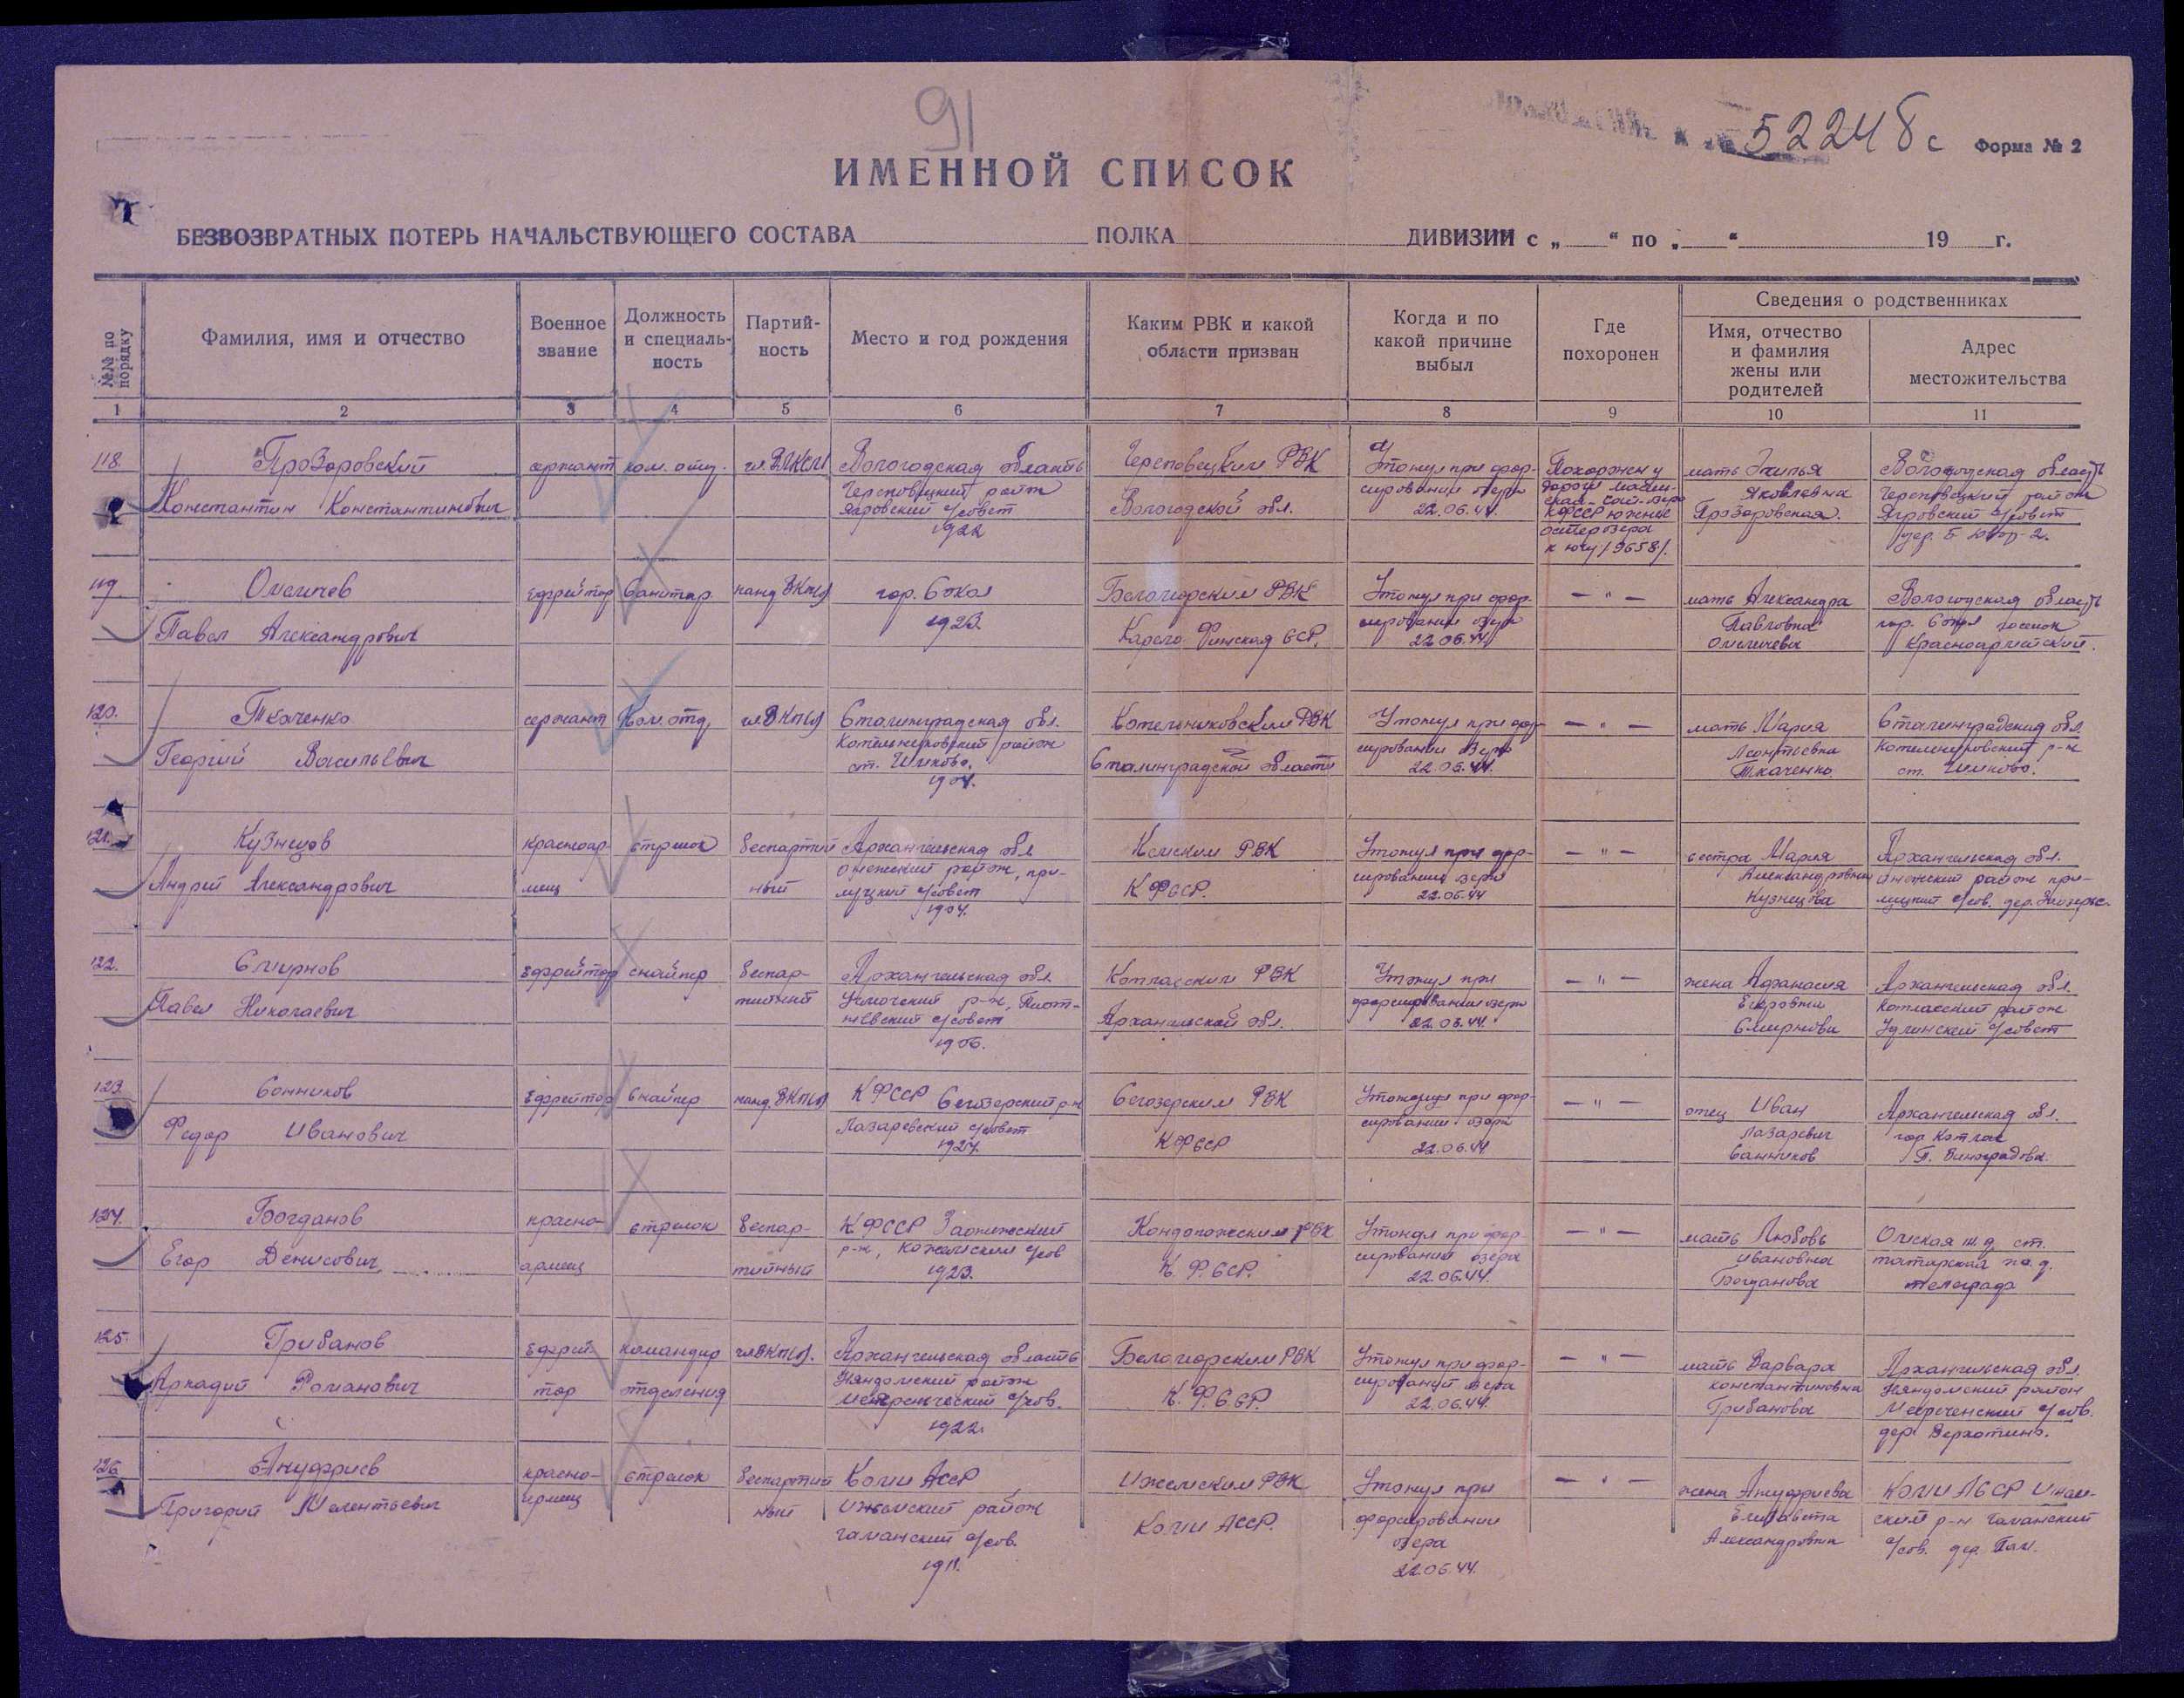 91
52248с
Форма № 2
ИМЕННОЙ СПИСОК
БЕЗВОЗВРАТНЫХ ПОТЕРЬ НАЧАЛЬСТВУЮЩЕГО СОСТАВА ПОЛКА ДИВИЗИИ с „ “ по „ “ 19 г.
№№ по порядку
Фамилия, имя и отчество
Военное звание
Должность и специаль-ность
Партий-ность
Место и год рождения
Каким РВК и какой области призван
Когда и по какой причине выбыл
Где похоронен
Сведения о родственниках
Имя, отчество и фамилия жены или родителей
Адрес местожительства
1 2 3 4 5 6 7 8 9 10 11
118. Прозоровский сержант ком. отд. чл. ВЛКСМ Вологодская область Череповецким РВК Утонул при фор- Похоронен у мать
Константин Константинович Череповецкий район Вологодской обл. сировании озера дороги Яковлевна Череповецкий район
сельсовет 22.06.44. КФССР южнее Прозоровская. с/совет
1922 озера
к югу /9658/.
119. Омеличев Ефрейтор Санитар канд ВКП(б) гор. Сокол Беломорским РВК Утонул при фор- — " — мать Александра Вологодская область
Павел Александрович 1923. Карело Финская ССР. сировании озера Павловна гор. Сокол поселок
22.06.44 Омеличева Красноармейский.
120. Ткаченко сержант Ком. отд. чл. ВКП(б) Сталинградская обл. Котельниковским РВК Утонул при фор- — " — мать Мария Сталинградская обл.
Георгий Васильевич Котельниковский район Сталинградской области сировании озера Леонтьевна Котельниковский р-н
ст. 22.06.44. Ткаченко ст.
1904.
121. Кузнецов красноар- стрелок беспартий Архангельская обл Кемским РВК Утонул при фор- — " — сестра Мария Архангельская обл.
Андрей Александрович меец ный Онежский район, при- КФССР. сировании озера Александровна Онежский район при-
луцкий с/совет 22.06.44 Кузнецова луцкий с/сов. дер.
1904.
122. Смирнов Ефрейтор снайпер беспар- Архангельская обл Котласским РВК Утонул при — " — жена Афанасия Архангельская обл.
Павел Николаевич тийный р-н, Архангельской обл. форсировании озера Егоровна Котласский район
с/совет 22.06.44. Смирнова Удимский с/совет
1906.
123. Санников Ефрейтор Снайпер канд. ВКП(б) КФССР Сегозерский р-н Сегозерским РВК Утонул при фор- — " — отец Иван Архангельская обл.
Федор Иванович Лазаревский с/совет КФССР сировании озера Лазаревич гор Котлас
1924. 22.06.44 Санников П. Виноградова.
124. Богданов красно- стрелок беспар- КФССР Заонежский Кондопожским РВК Утонул при фор- — " — мать Любовь Омская ж.д. ст.
Егор Денисович армеец тийный р-н, с/сов К.Ф.ССР. сировании озера Ивановна татарская
1923. 22.06.44. Богданова телеграфа
125. Грибанов Ефрей- командир чл ВКП(б). Архангельская область Беломорским РВК Утонул при фор- — " — мать Варвара Архангельская обл.
Аркадий Романович тор отделения Няндомский район К.Ф.ССР. сировании озера Константиновна Няндомский район
с/сов. 22.06.44. Грибанова с/сов.
1922. дер.
126. Ануфриев красно- стрелок беспартий Коми АССР Ижемским РВК Утонул при — " — жена Ануфриева Коми АССР Ижем-
Григорий Мелентьевич армеец ный Ижемский район Коми АССР. форсировании Елизавета ский р-н Гамский
с/сов. озера Александровна с/сов. дер. Гам.
1911. 22.06.44.